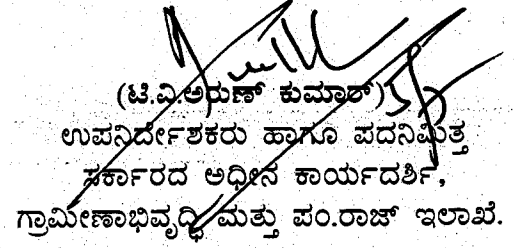 (ಟಿ.ವಿ.ಅರುಣ್ ಕುಮಾರ್)
ಉಪನಿರ್ದೇಶಕರು ಹಾಗೂ ಪದನಿಮಿತ್ತ
ಸರ್ಕಾರದ ಅಧೀನ ಕಾರ್ಯದರ್ಶಿ,
ಗ್ರಾಮೀಣಾಭಿವೃದ್ಧಿ ಮತ್ತು ಪಂ.ರಾಜ್ ಇಲಾಖೆ.